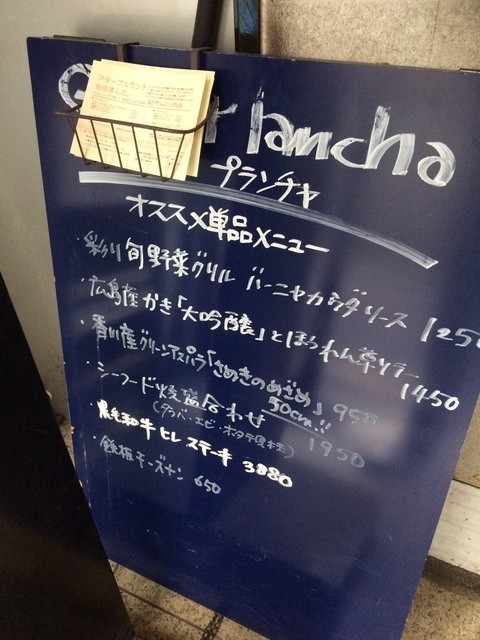 lancha
アターブルランチ
始めました
プランチャ
オススメ単品メニュー
・彩り旬野菜グリル バーニャカウダソース 1250
・広島産かき「大吟醸」とほうれん草ソテー 1450
・香川産グリーンアスパラ「さぬきのめざめ」 950
50cm!!
・シーフード焼盛合わせ 1950
・黒毛和牛ヒレステーキ 3880
・鉄板チーズナン 650